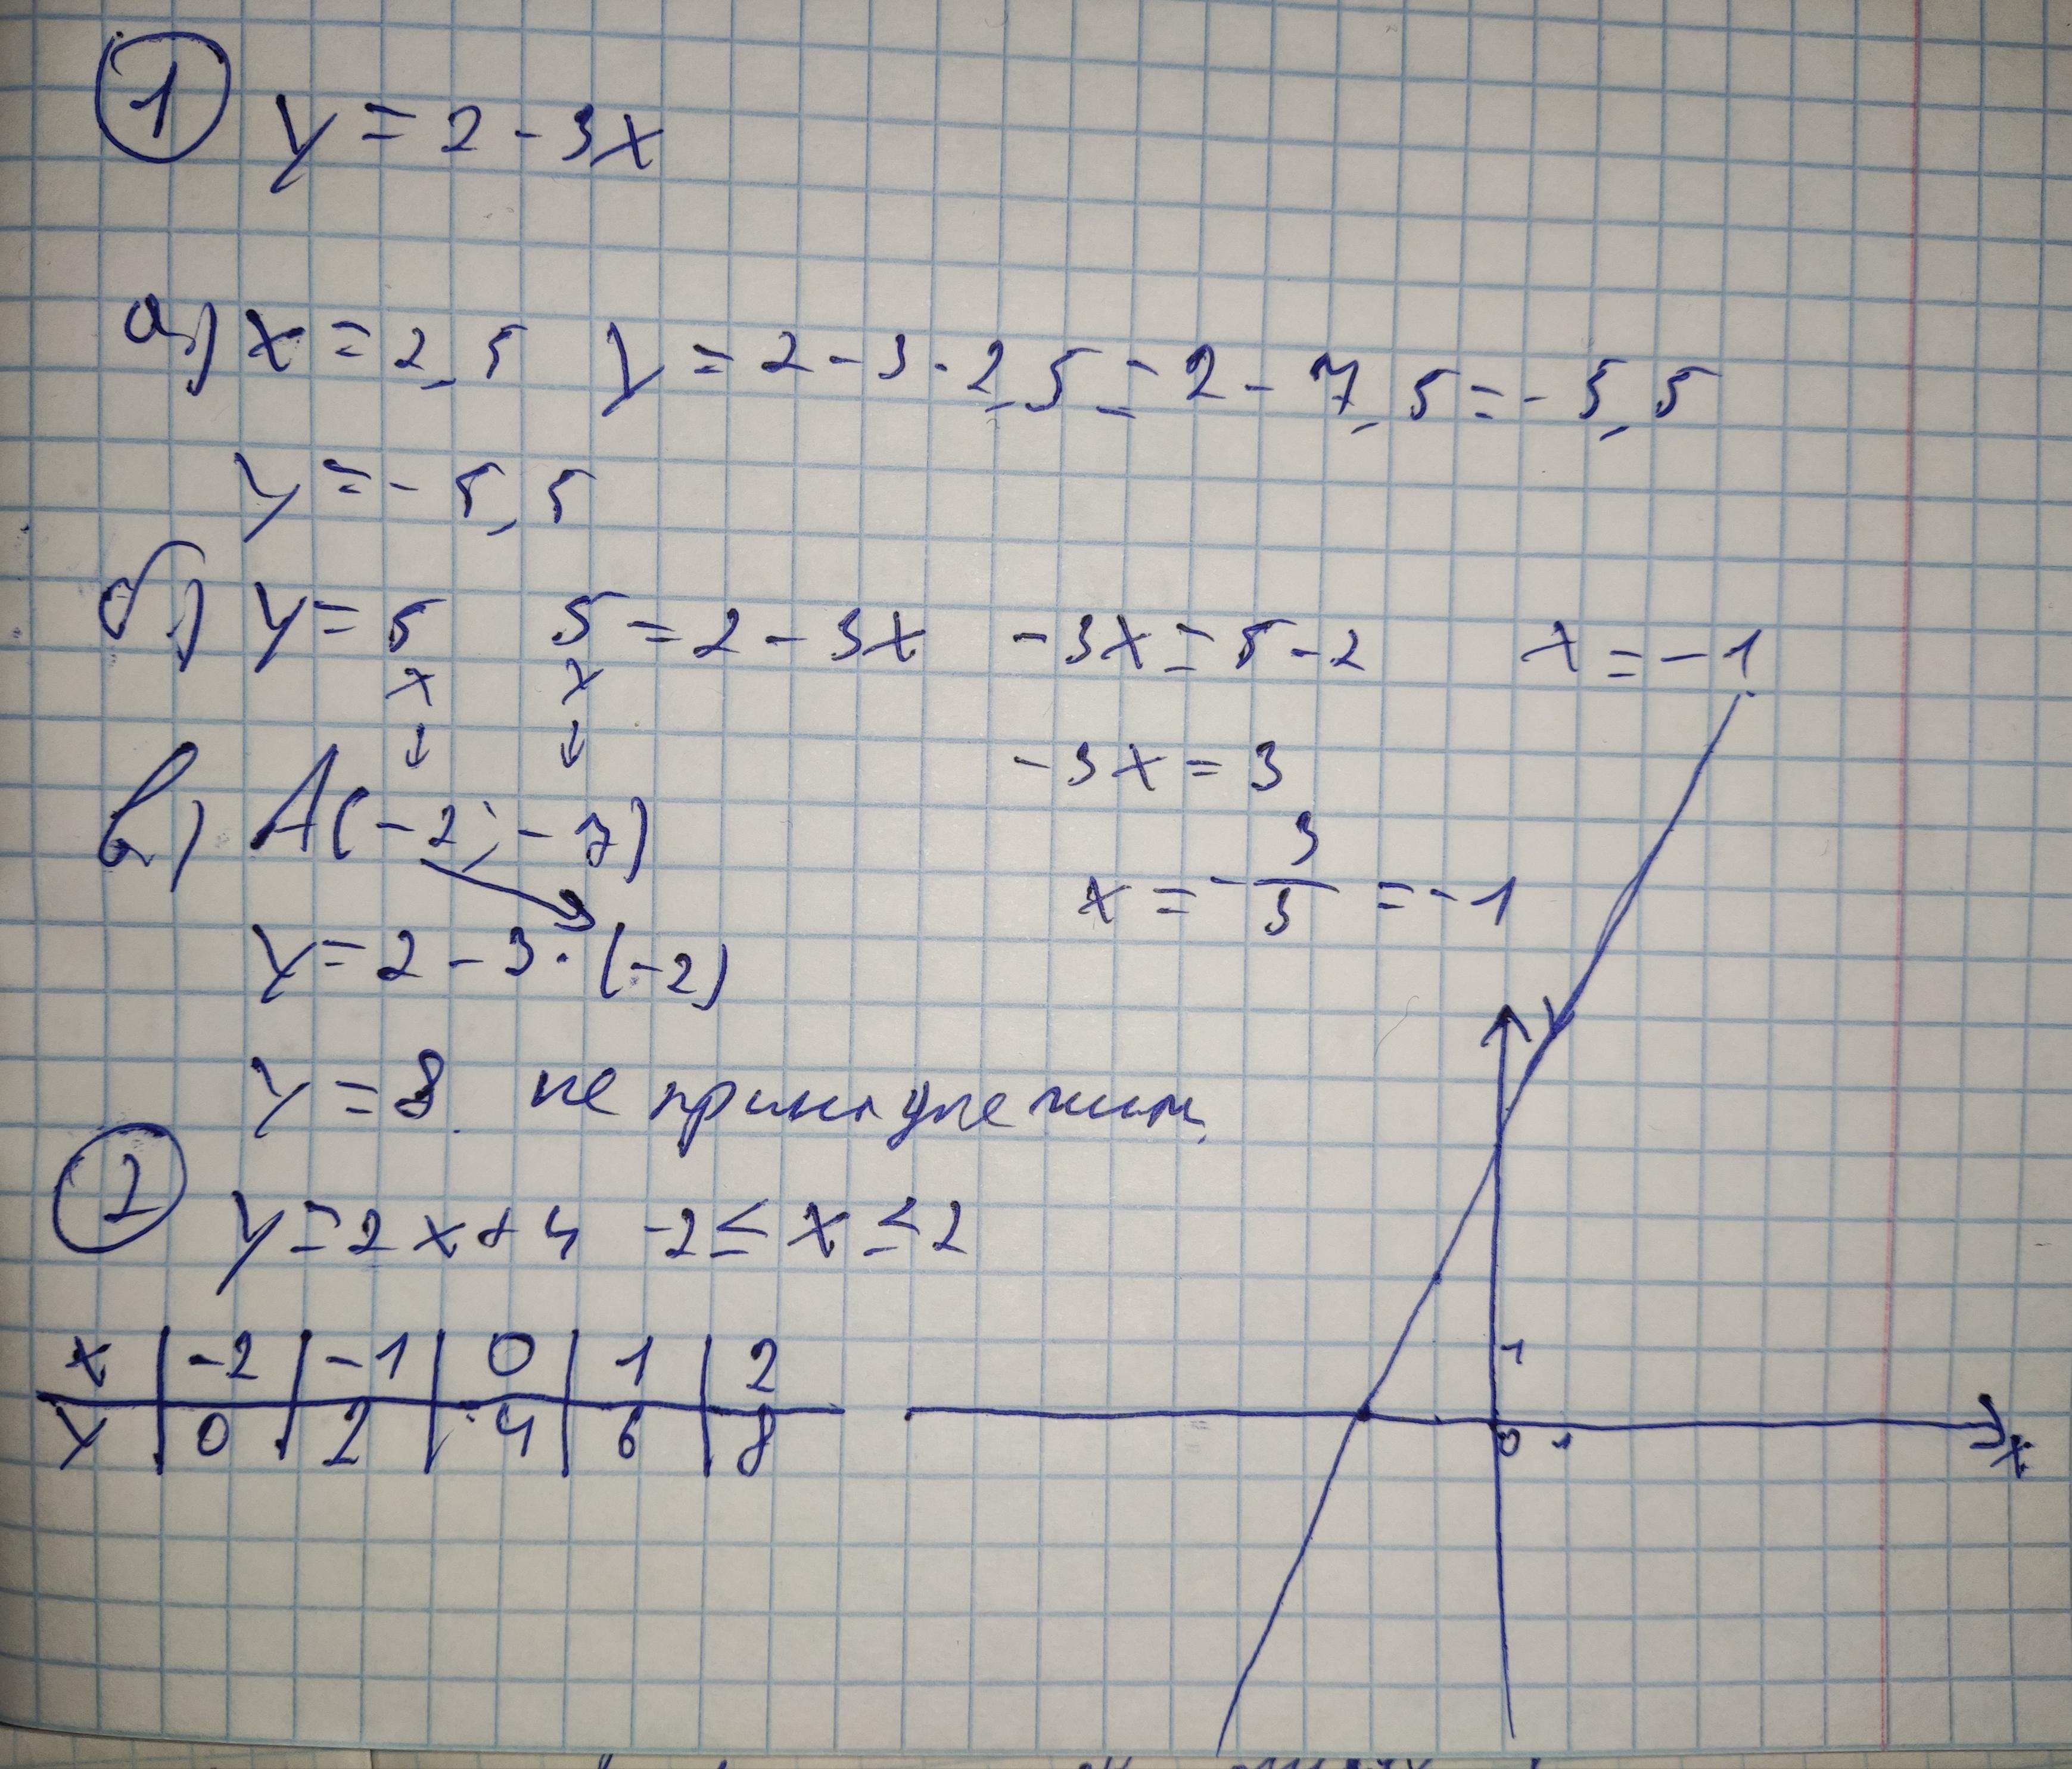 1 y = 2 - 3x
а) x = 2,5 y = 2 - 3 · 2,5 = 2 - 7,5 = - 5,5
y = - 5,5
б) y = 5 5 = 2 - 3x -3x = 5 - 2 x = -1
x x
↓ ↓
-3x = 3
в) A(-2; -7)
x = - 3/3 = -1
y = 2 - 3 · (-2)
y = 8 не принадлежит
2 y = 2x + 4 -2 ≤ x ≤ 2
x | -2 | -1 | 0 | 1 | 2
y | 0 | 2 | 4 | 6 | 8
y
1
0 1
x